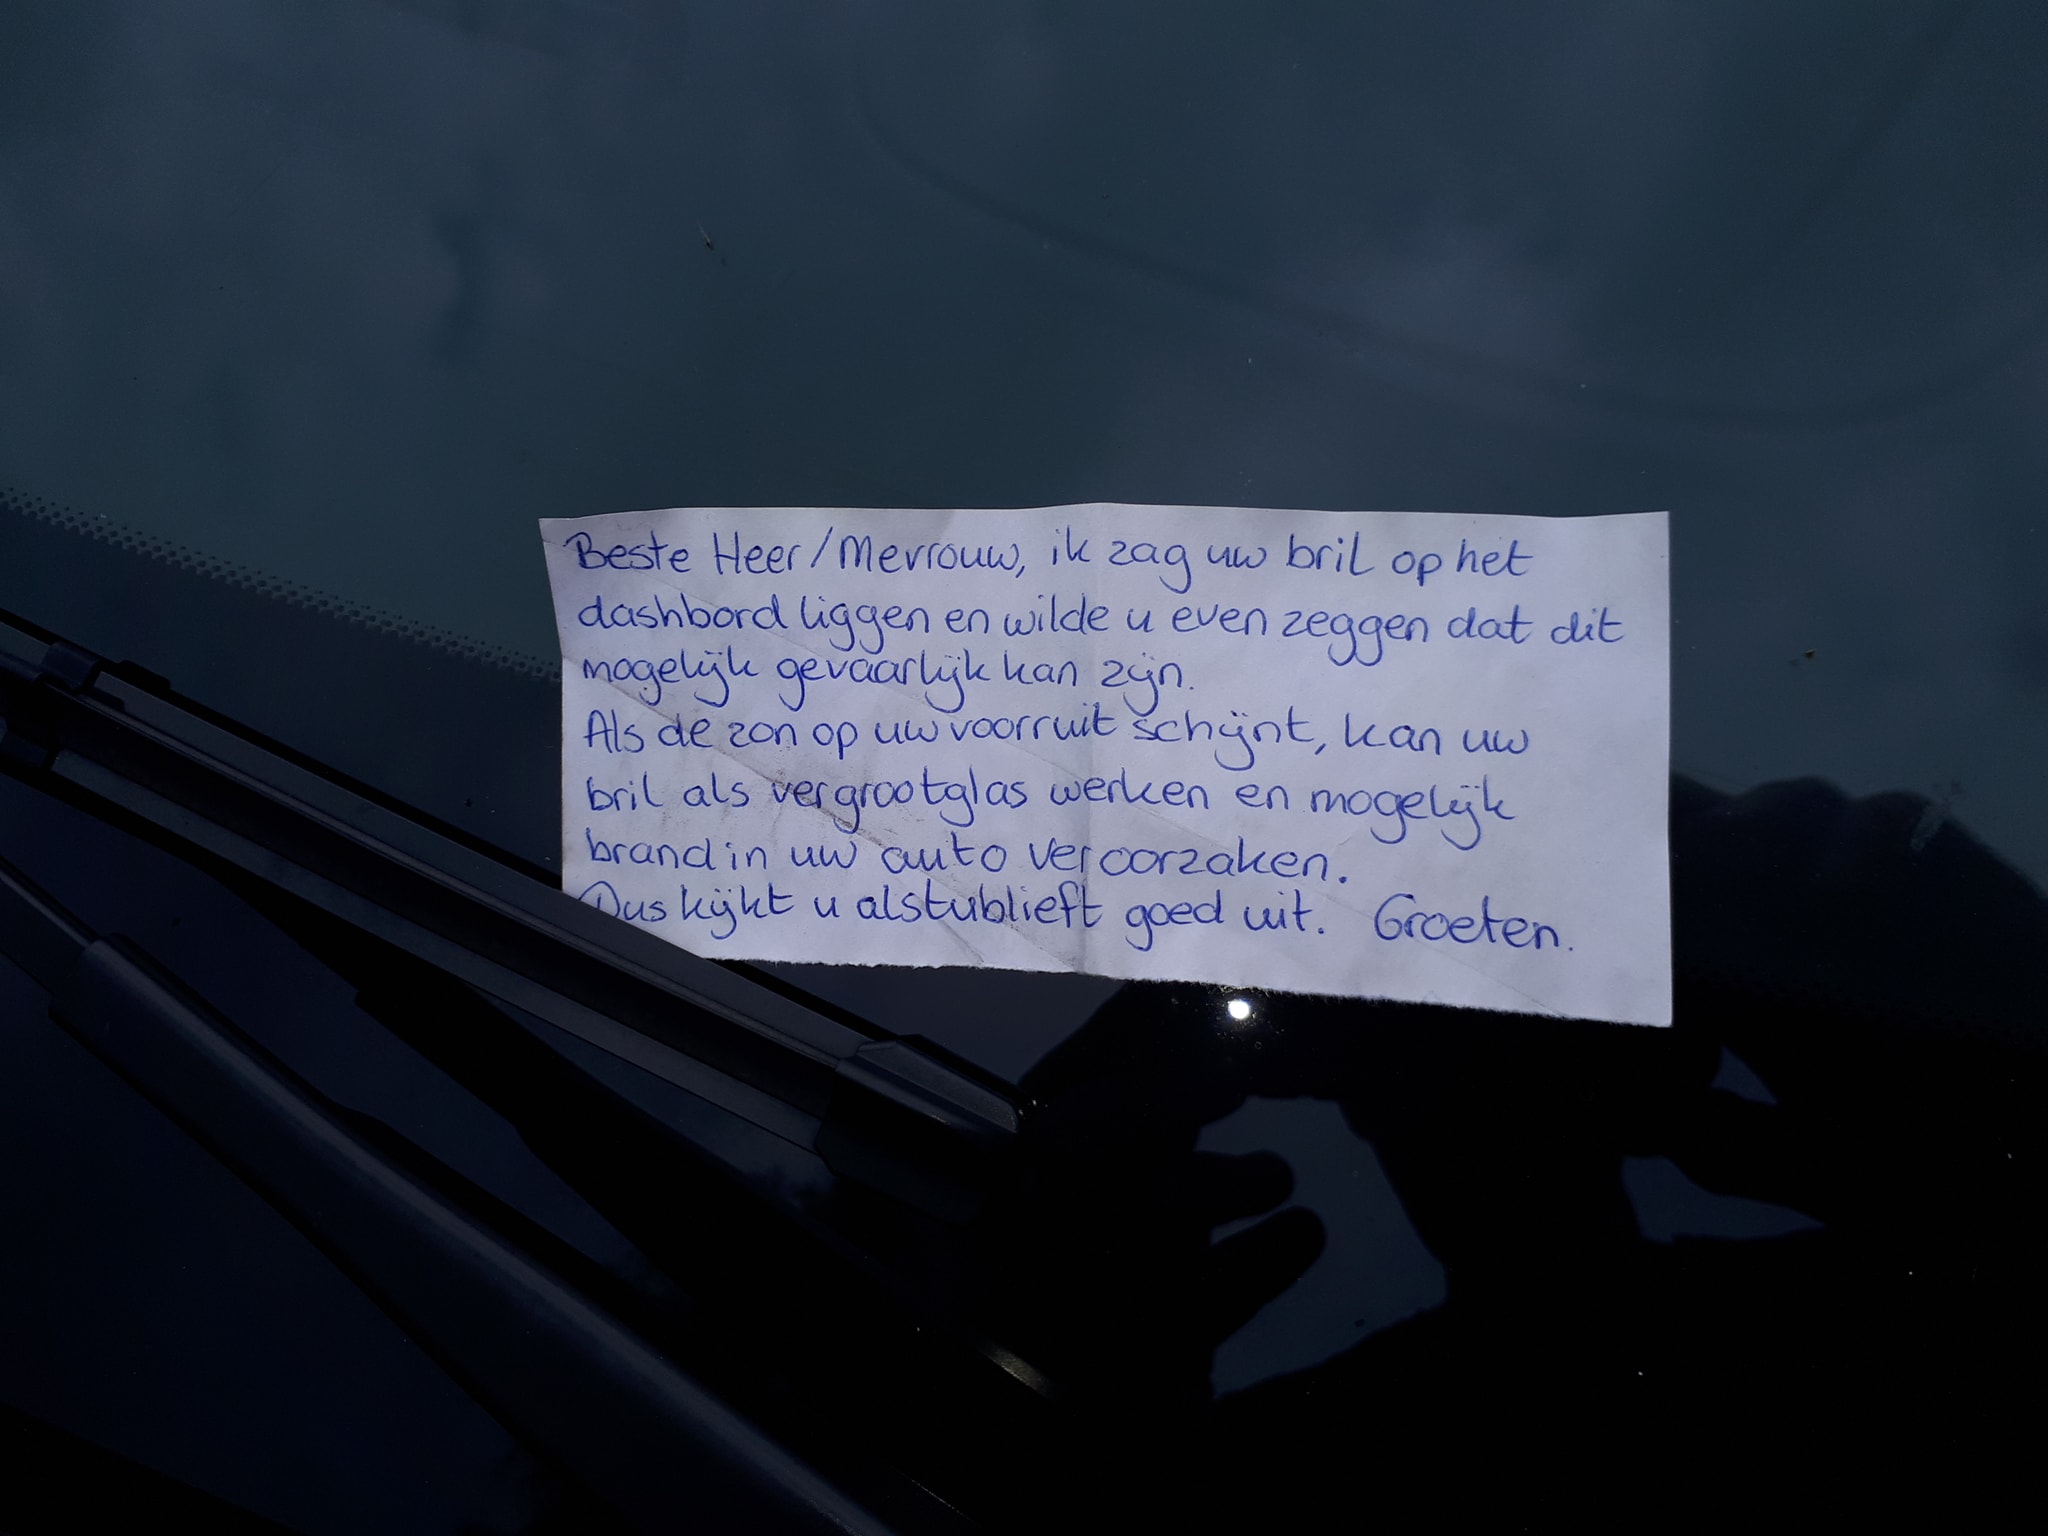 Beste Heer/Mevrouw, ik zag uw bril op het
dashbord liggen en wilde u even zeggen dat dit
mogelijk gevaarlijk kan zijn.
Als de zon op uw voorruit schijnt, kan uw
bril als vergrootglas werken en mogelijk
brand in uw auto veroorzaken.
Dus kijkt u alstublieft goed uit. Groeten.